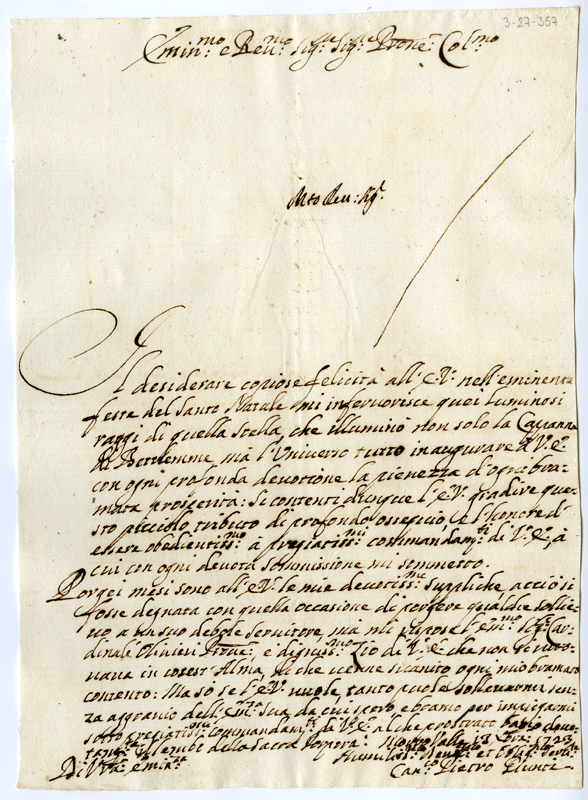 3-27-357
Emin:mo e Reu:mo Sig:re Sig:re Prone Col:mo
Mto Reu: Sig:r
Il desiderare copiose felicità all' E.V. nell'eminente
feste del Santo Natale mi inferuorisce quei luminosi
raggi di quella Stella, che illuminò non solo la Capanna
di Bettlemme ma l'Universo tutto in augurare à V. E.
con ogni profonda deuotione la pienezza d'ogni bra-
mata prosperità: Si contenti dunque l'E.V. gradire que-
sto picciolo tributo di profondo ossequio, e l'honore d'
essere obedientiss:mo à pregiatiss:mi commandam:ti di V. E., à
cui con ogni deuota sommissione mi sommetto.
Porgei mesi sono all' E.V. le mie deuotiss:me suppliche, acciò si
fosse degnata con quella occasione di porgere qualche sollie-
uo à un suo debole Seruitore, ma mi rispose l'Em:mo Sig:r Car-
dinale Oliuieri Prone, e digniss:mo Zio di V. E. che non si ritro-
uaua in cotest' Alma, il che uenne suanito ogni mio bramato
contento: Ma so se l'E.V. uuole, tanto puole solleuarmi sen-
za aggrauio dell' Em:za Sua, da cui spero e bramo per impiegarmi
sotto pregiatiss:mi commandam:ti di V. E. al che prostrato bacio deuo-
tam:te il lembo della Sacra Porpora. 1723
Di V:ra Emin:za
Humiliss:mo et oblig:mo Seru:re
Can:co Pietro